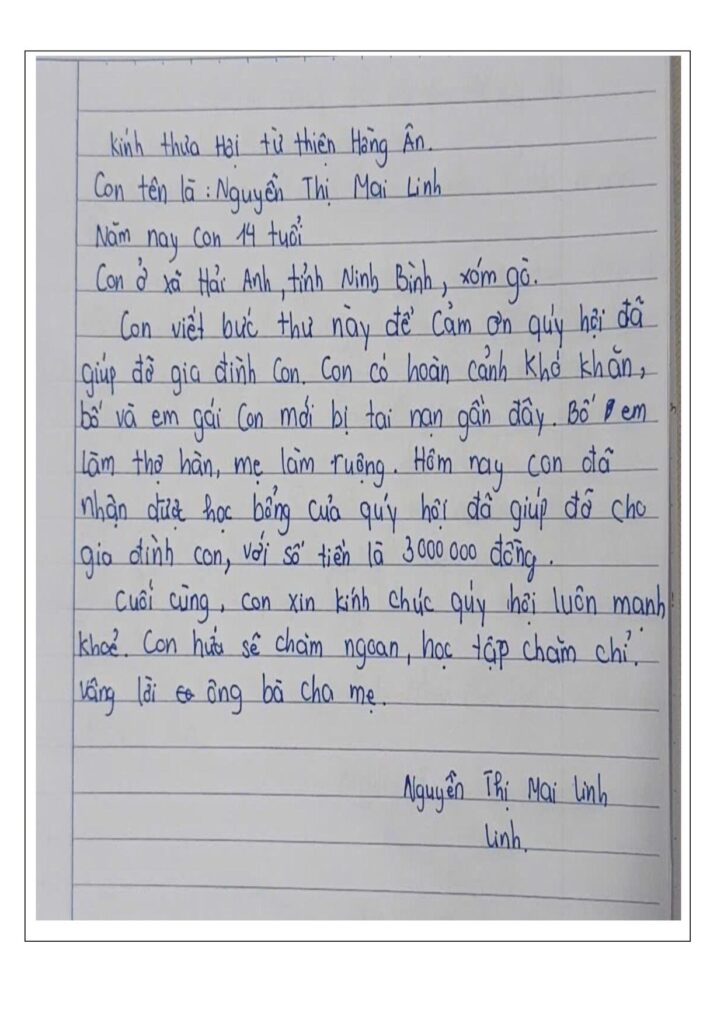 Kính thưa Hội từ thiện Hồng Ân.
Con tên là : Nguyễn Thị Mai Linh
Năm nay con 14 tuổi
Con ở xã Hải Anh, tỉnh Ninh Bình, xóm gò.
Con viết bức thư này để cảm ơn quý hội đã
giúp đỡ gia đình con. Con có hoàn cảnh khó khăn,
bố và em gái con mới bị tai nạn gần đây. Bố em
làm thợ hàn, mẹ làm ruộng. Hôm nay con đã
nhận được học bổng của quý hội đã giúp đỡ cho
gia đình con, với số tiền là 3000000 đồng.
Cuối cùng, con xin kính chúc quý hội luôn mạnh
khoẻ. Con hứa sẽ chăm ngoan, học tập chăm chỉ.
Vâng lời ông bà cha mẹ.
Nguyễn Thị Mai Linh
Linh.